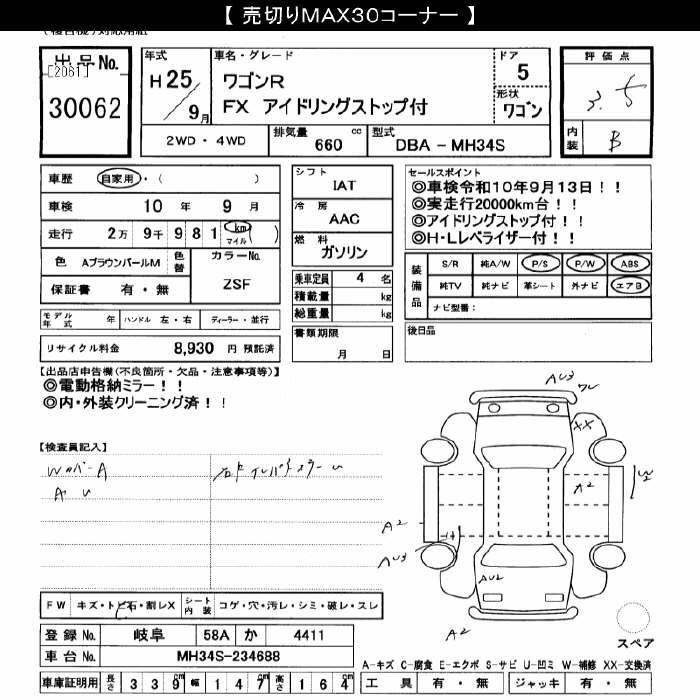 【 売切りMAX30コーナー 】
出品No.
[2061]
30062
年式
H 25/9月
車名・グレード
ワゴンR
FX アイドリングストップ付
ドア
5
形状
ワゴン
評価点
3.5
内装
B
2WD ・ 4WD
排気量 660 cc
型式 DBA － MH34S
車歴 自家用・( )
車検 10 年 9 月
走行 2万 9千 9 8 1 km マイル )
色 AブラウンパールM 色替
カラーNo. ZSF
保証書 有・無
モデル年式 年 ハンドル 左・右 ディーラー・並行
リサイクル料金 8,930 円 預託済
シフト
IAT
冷房
AAC
燃料
ガソリン
乗車定員 4 名
積載量 kg
総重量 kg
書類期限
月 日
セールスポイント
◎車検令和10年9月13日！！
◎実走行20000km台！！
◎アイドリングストップ付！！
◎H・Lレベライザー付！！
装備品
S/R 純A/W P/S P/W ABS
純TV 純ナビ 革シート 外ナビ エアB
ナビ型番：
後日品
【出品店申告欄(不良箇所・欠品・注意事項等)】
◎電動格納ミラー！！
◎内・外装クリーニング済！！
【検査員記入】
WカバーA
A U
AU3
XX
A2
W2
A2
AU3
AU2
A2
FW キズ・トビ石・割レX
シート内装 コゲ・穴・汚レ・シミ・破レ・スレ
登録No. 岐阜 58A か 4411
車台No. MH34S-234688
車庫証明用 長さ 3 3 9 cm 幅 1 4 7 cm 高さ 1 6 4 cm
スペア
A-キズ C-腐食 E-エクボ S-サビ U-凹ミ W-補修 XX-交換済
工具 有・無 ジャッキ 有・無